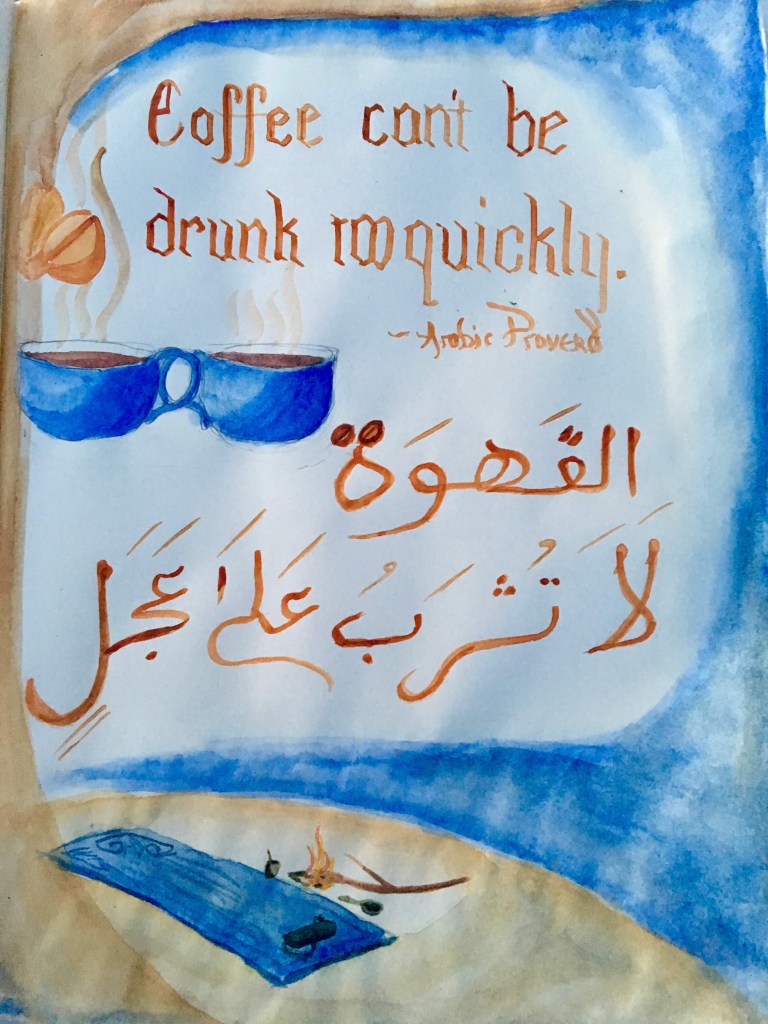 Coffee can't be
drunk too quickly.
~ Arabic Proverb
القَهوَة
لَا تُشرَبُ عَلَىَ عَجَلٍ